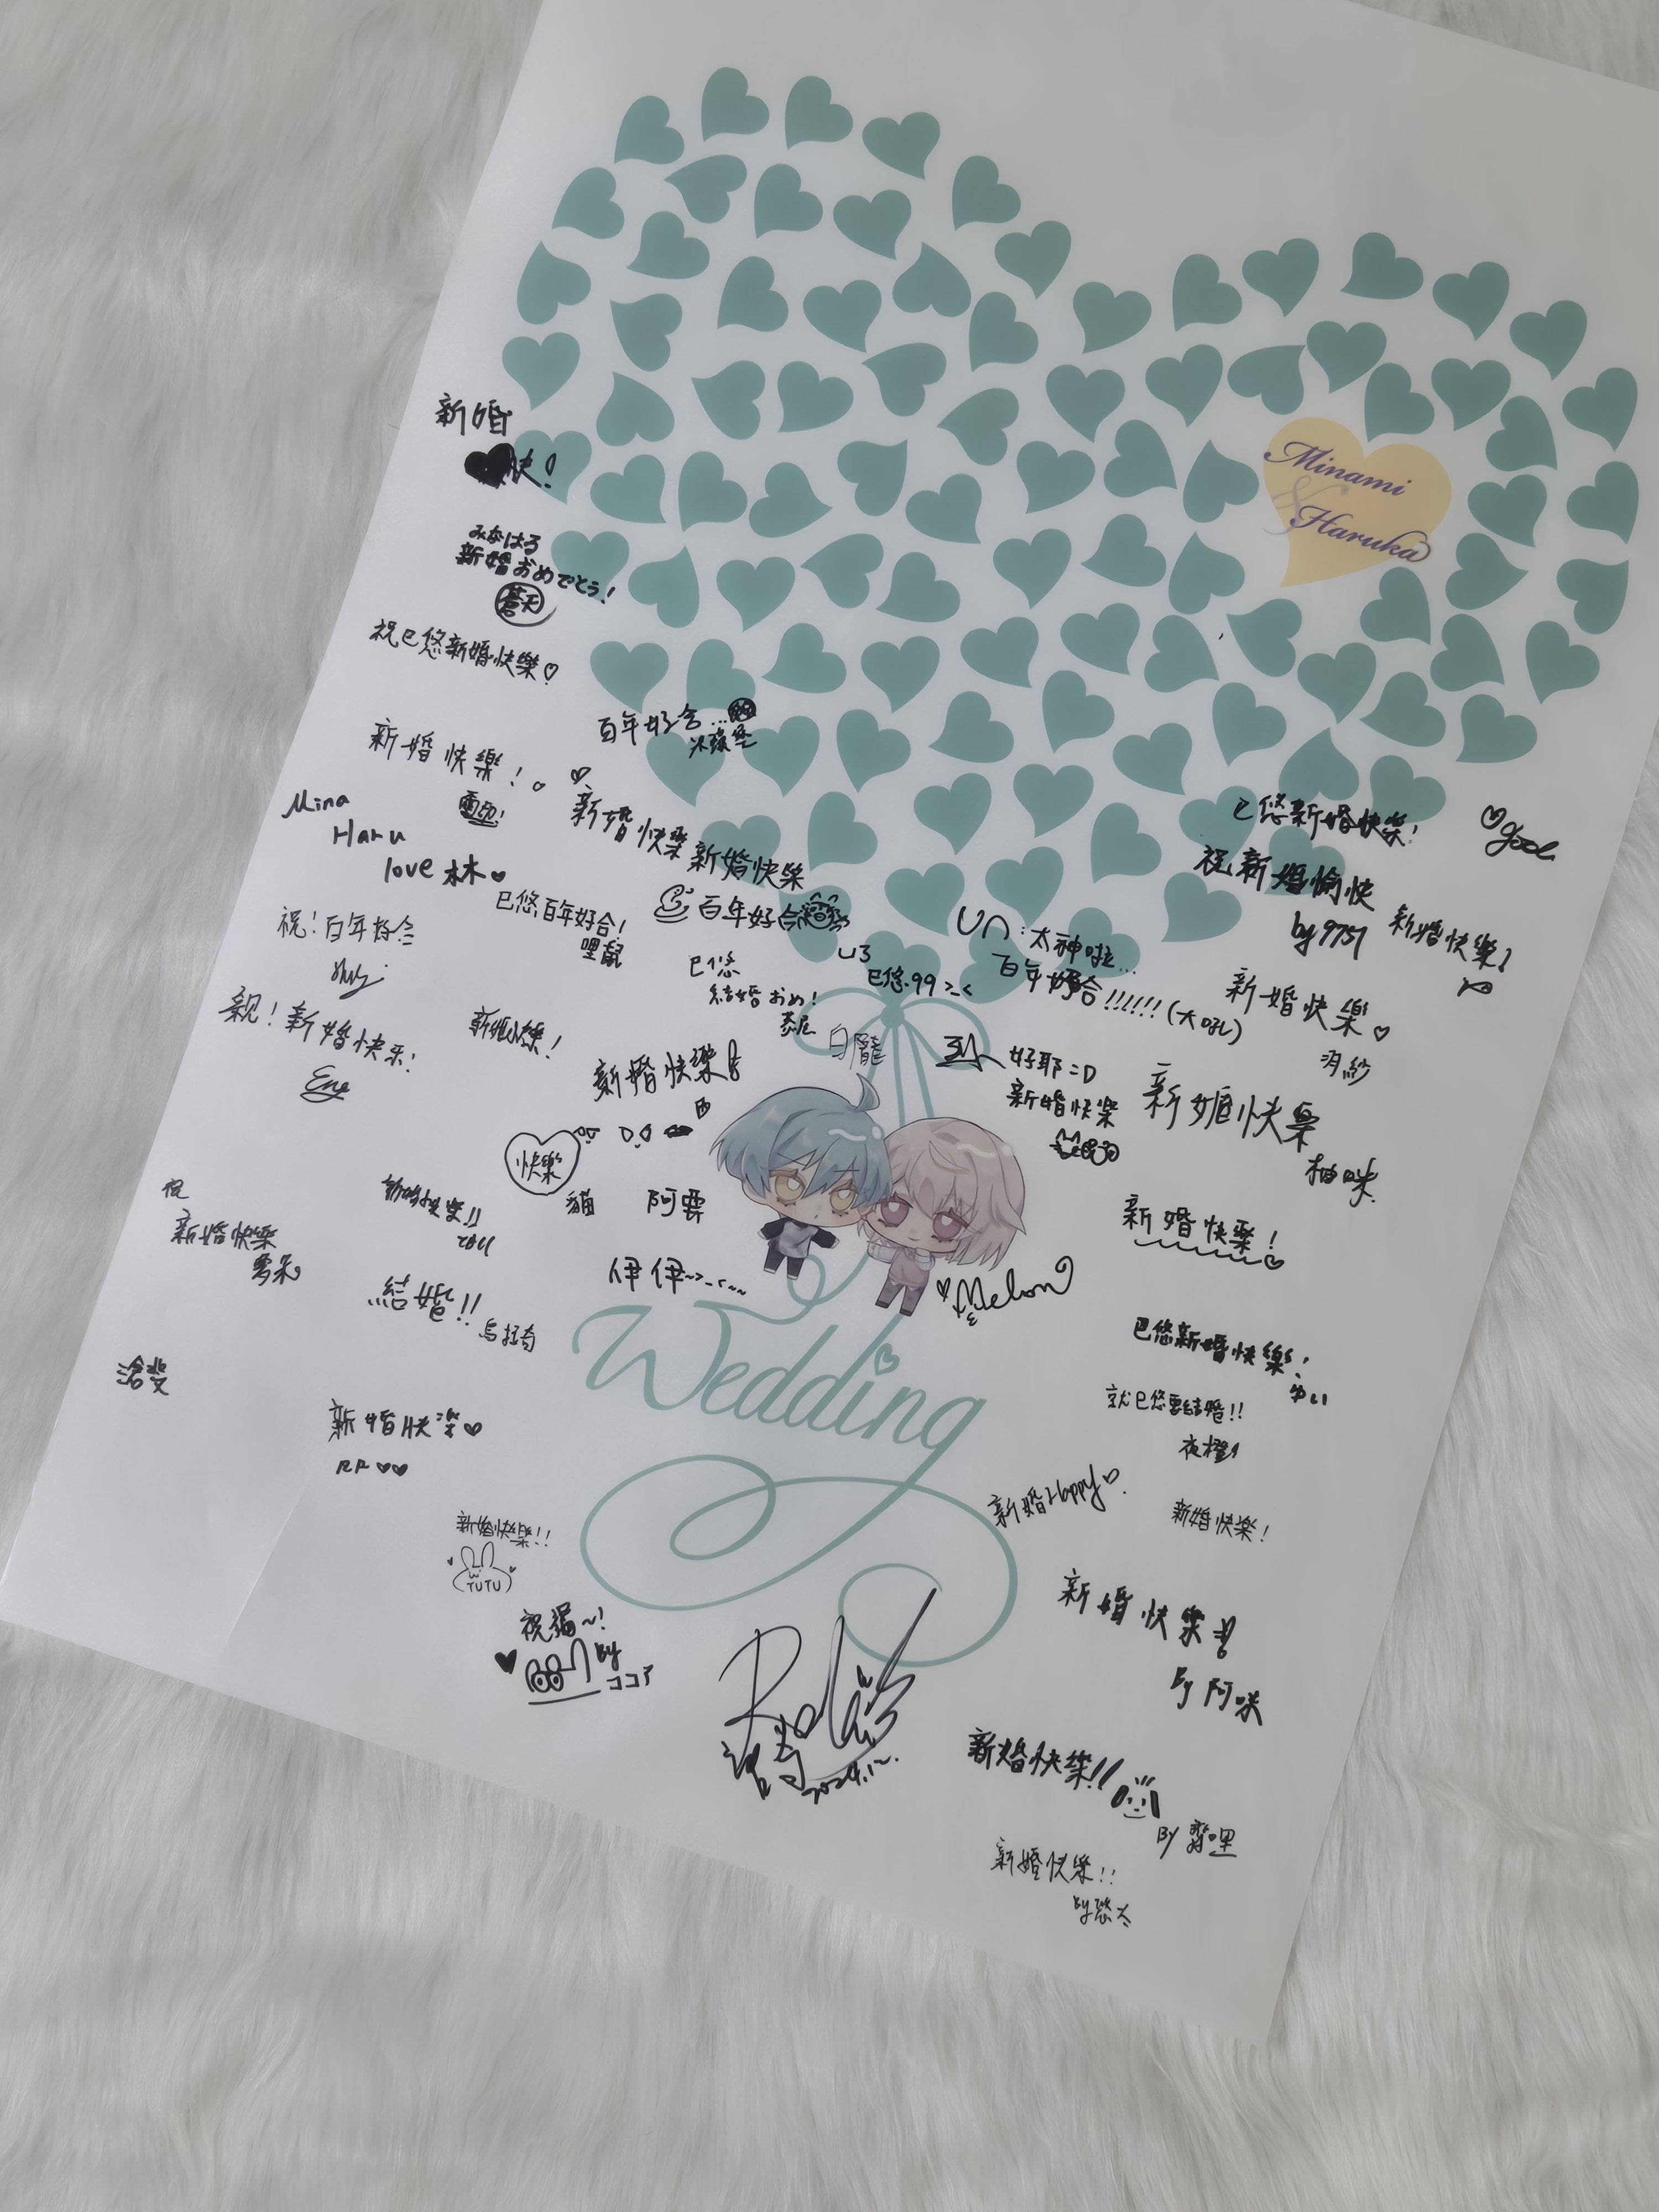 Minami
&
Haruka
新婚
快!
みなはる
新婚おめでとう!
蒼天
祝巳悠新婚快樂♡
百年好合...
新婚快樂!♡
新婚快樂
新婚快樂
Mina
Haru
love 林♥
巳悠百年好合!
哩鼠
百年好合
祝!百年好合
親!新婚快乐!
巳悠
結婚おめ!
巳悠.99 >_<
白龍
太神啦...
百年好合!!!!!!(大吼)
巳悠新婚快樂!
♡good
祝新婚愉快
by 9751
新婚快樂!
新婚快樂♡
好耶=D
新婚快樂
新婚快樂
柚咪
新婚快樂!
新婚快樂
快樂
貓
阿雲
祝
新婚快樂
新婚快樂!!
結婚!!
烏拉奇
伊伊~>_<~~
♥Melon
新婚快樂!♡
Wedding
巳悠新婚快樂!
ゆい
就巳悠要結婚!!
夜橙
新婚快樂♡
新婚Happy♡
新婚快樂!
新婚快樂!!
TUTU
祝福~!
By
ココア
新婚快樂
By 阿咪
2024.12.
新婚快樂!!
By 霽哩
新婚快樂!!
By悠太